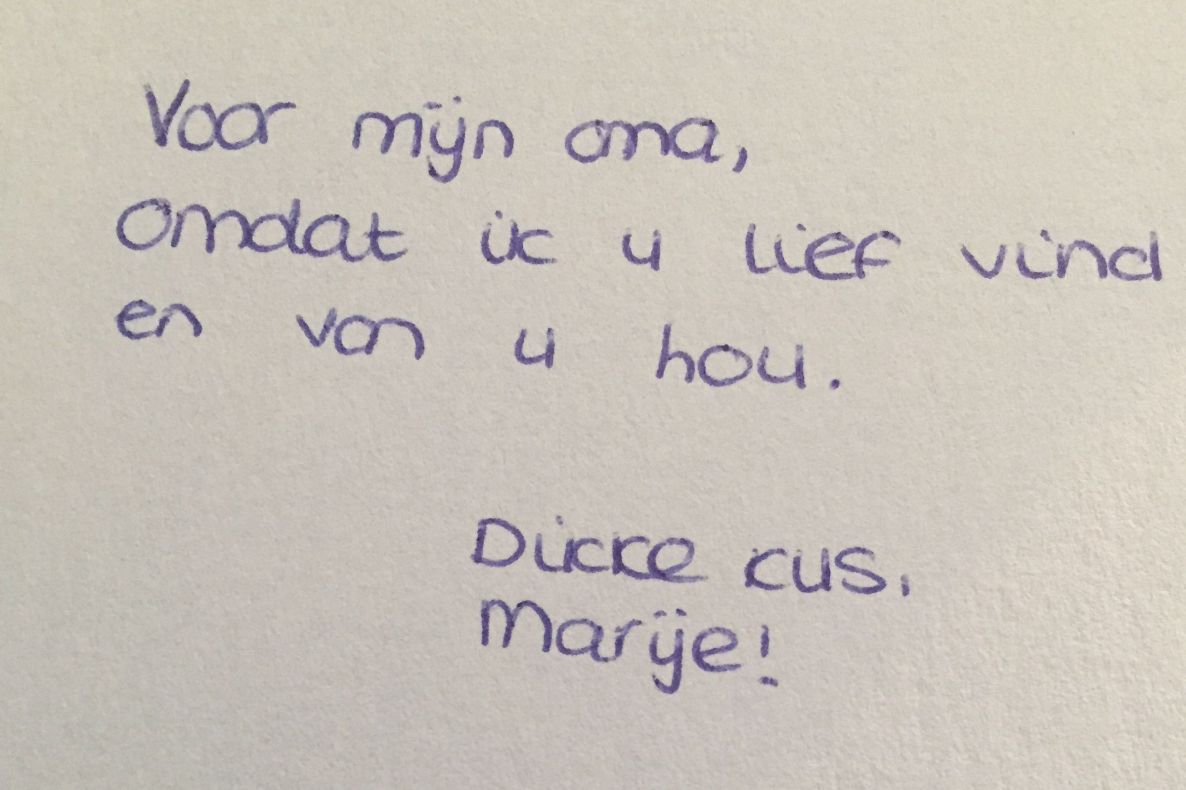 Voor mijn oma,
omdat ik u lief vind
en van u hou.
Dikke kus,
Marije!